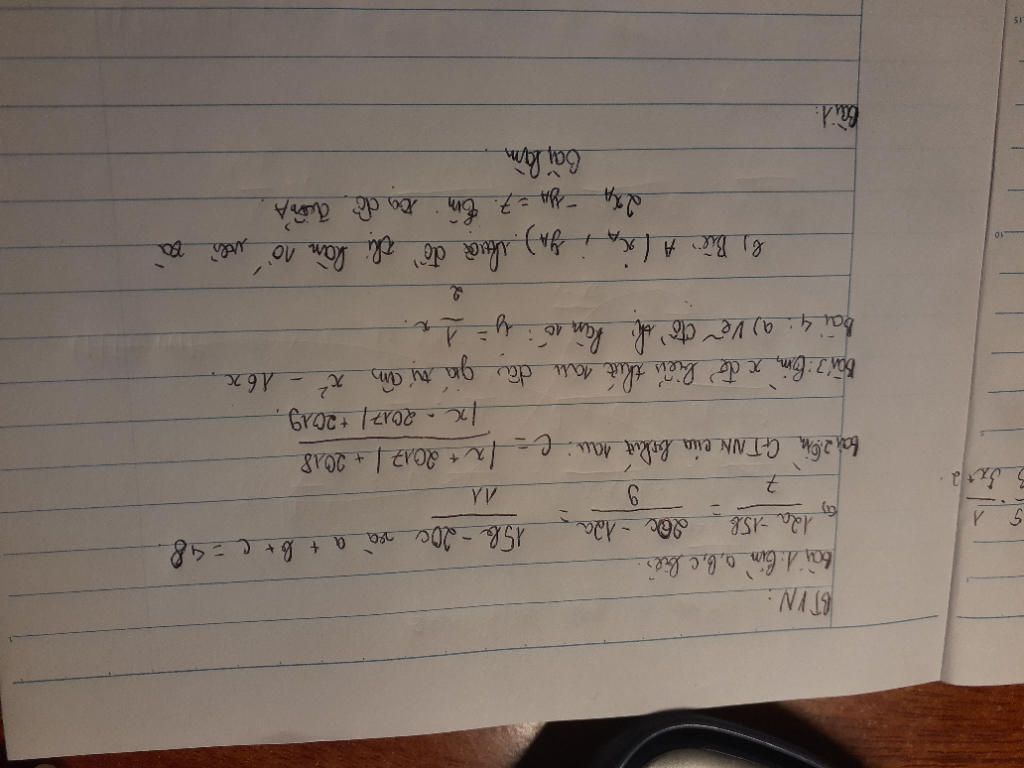 BTVN:
Bài 1: Tìm a, b, c biết:
a, 12a - 15b / 7 = 20c - 12a / 9 = 15b - 20c / 11 và a + b + c = 48
Bài 2: Tìm GTNN của bt sau: C = |x + 2017| + 2018 / |x - 2017| + 2019.
Bài 3: Tìm x để biểu thức sau có giá trị âm x² - 16x.
Bài 4: a) Vẽ đồ thị hàm số: y = 1/2 x.
b) Biết A (xA; yA) thuộc đồ thị hàm số và
2xA - yA = 7. Tìm tọa độ điểm A.
Bài làm.
Bài 1:
5
1
3x + 2